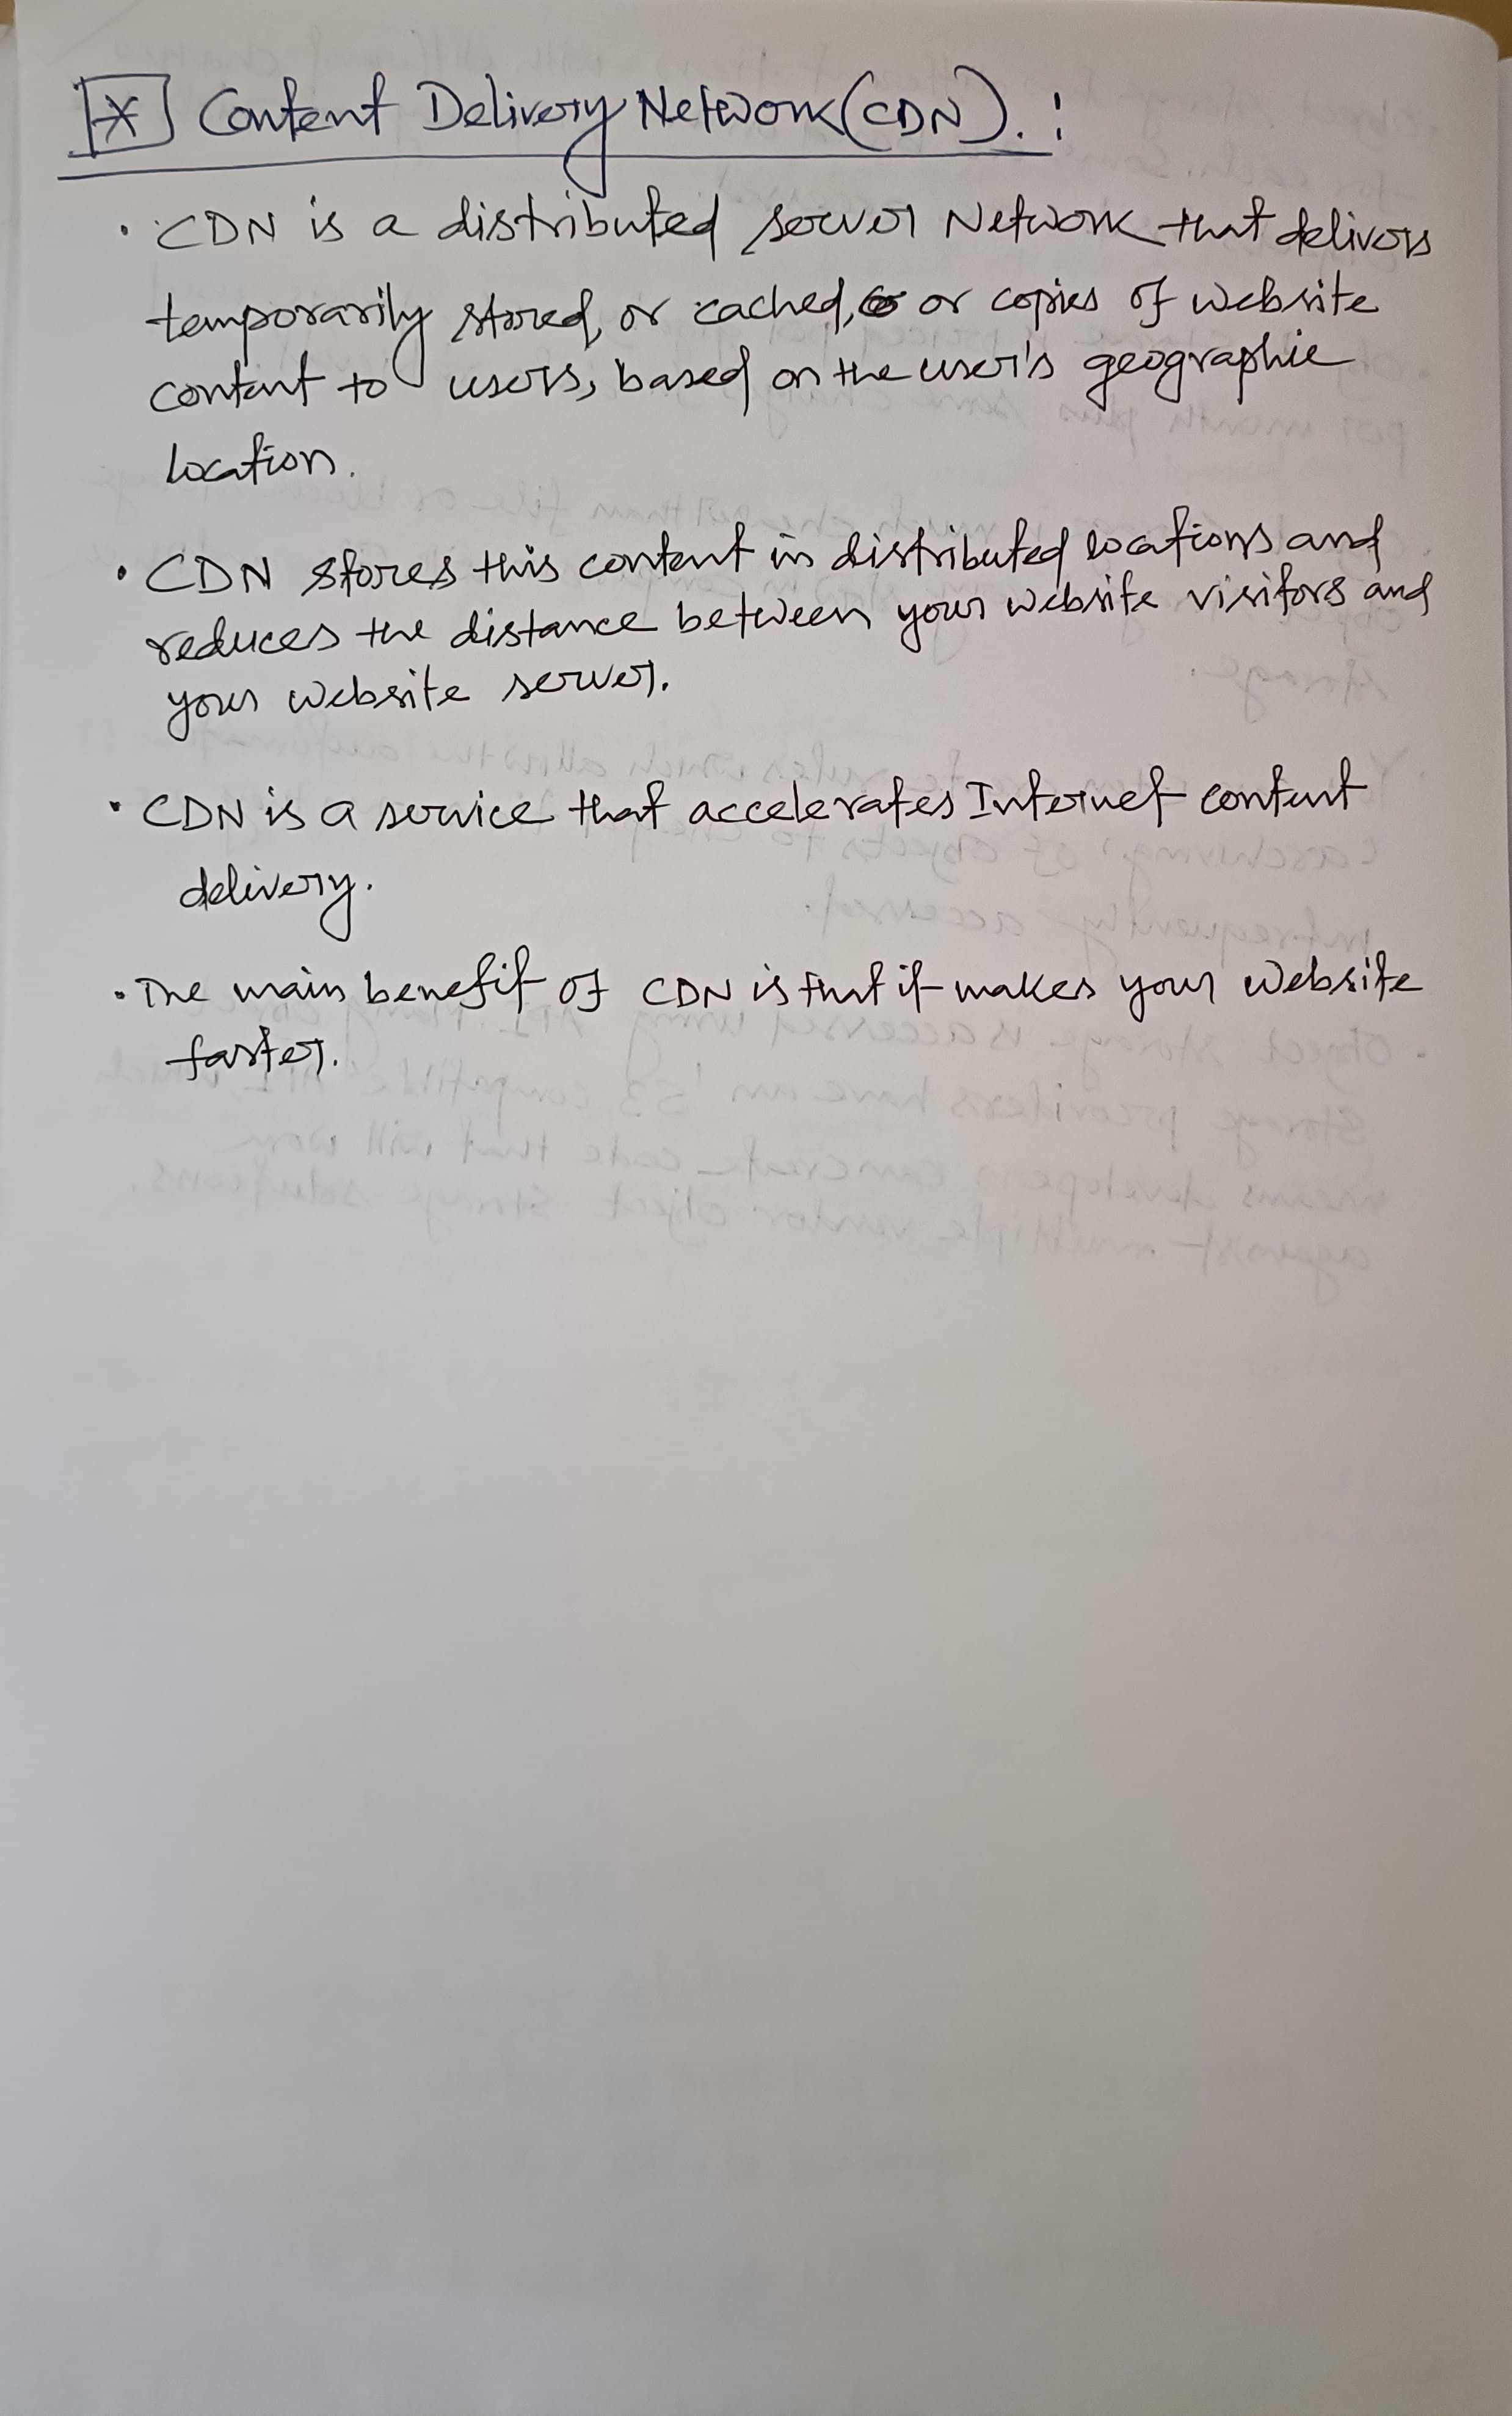 [*] Content Delivery Network (CDN). :
• CDN is a distributed server Network that delivers
temporarily stored, or cached, or copies of website
content to users, based on the user's geographic
location.
• CDN stores this content in distributed locations and
reduces the distance between your website visitors and
your website server.
• CDN is a service that accelerates Internet content
delivery.
• The main benefit of CDN is that it makes your website
faster.